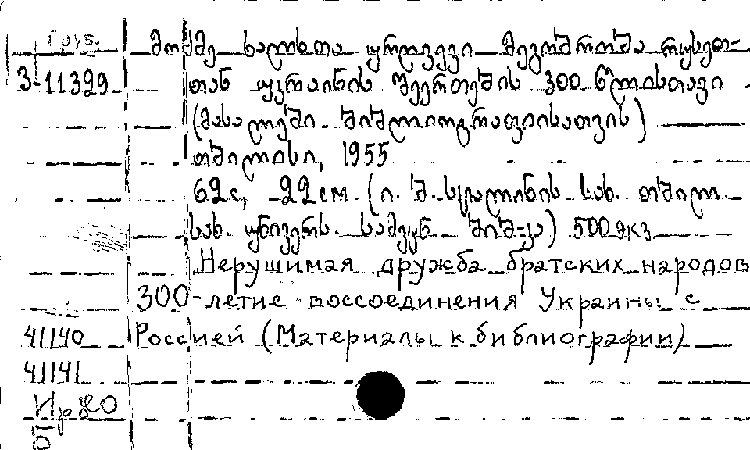 Груз.
მოძმე ხალხთა ურღვევი მეგობრობა რუსეთ-
3-11329 თან უკრაინის შეერთების 300 წლისთავი
(მასალები ბიბლიოგრაფიისათვის)
თბილისი, 1955
62с, 22см (ი. ბ. სტალინის სახ. თბილ.
სახ. უნივერს. სამეცნ ბიბ-კა) 500экз
Нерушимая дружба братских народов
300-летие воссоединения Украины с
41140 Россией (Материалы к библиографии)
41141